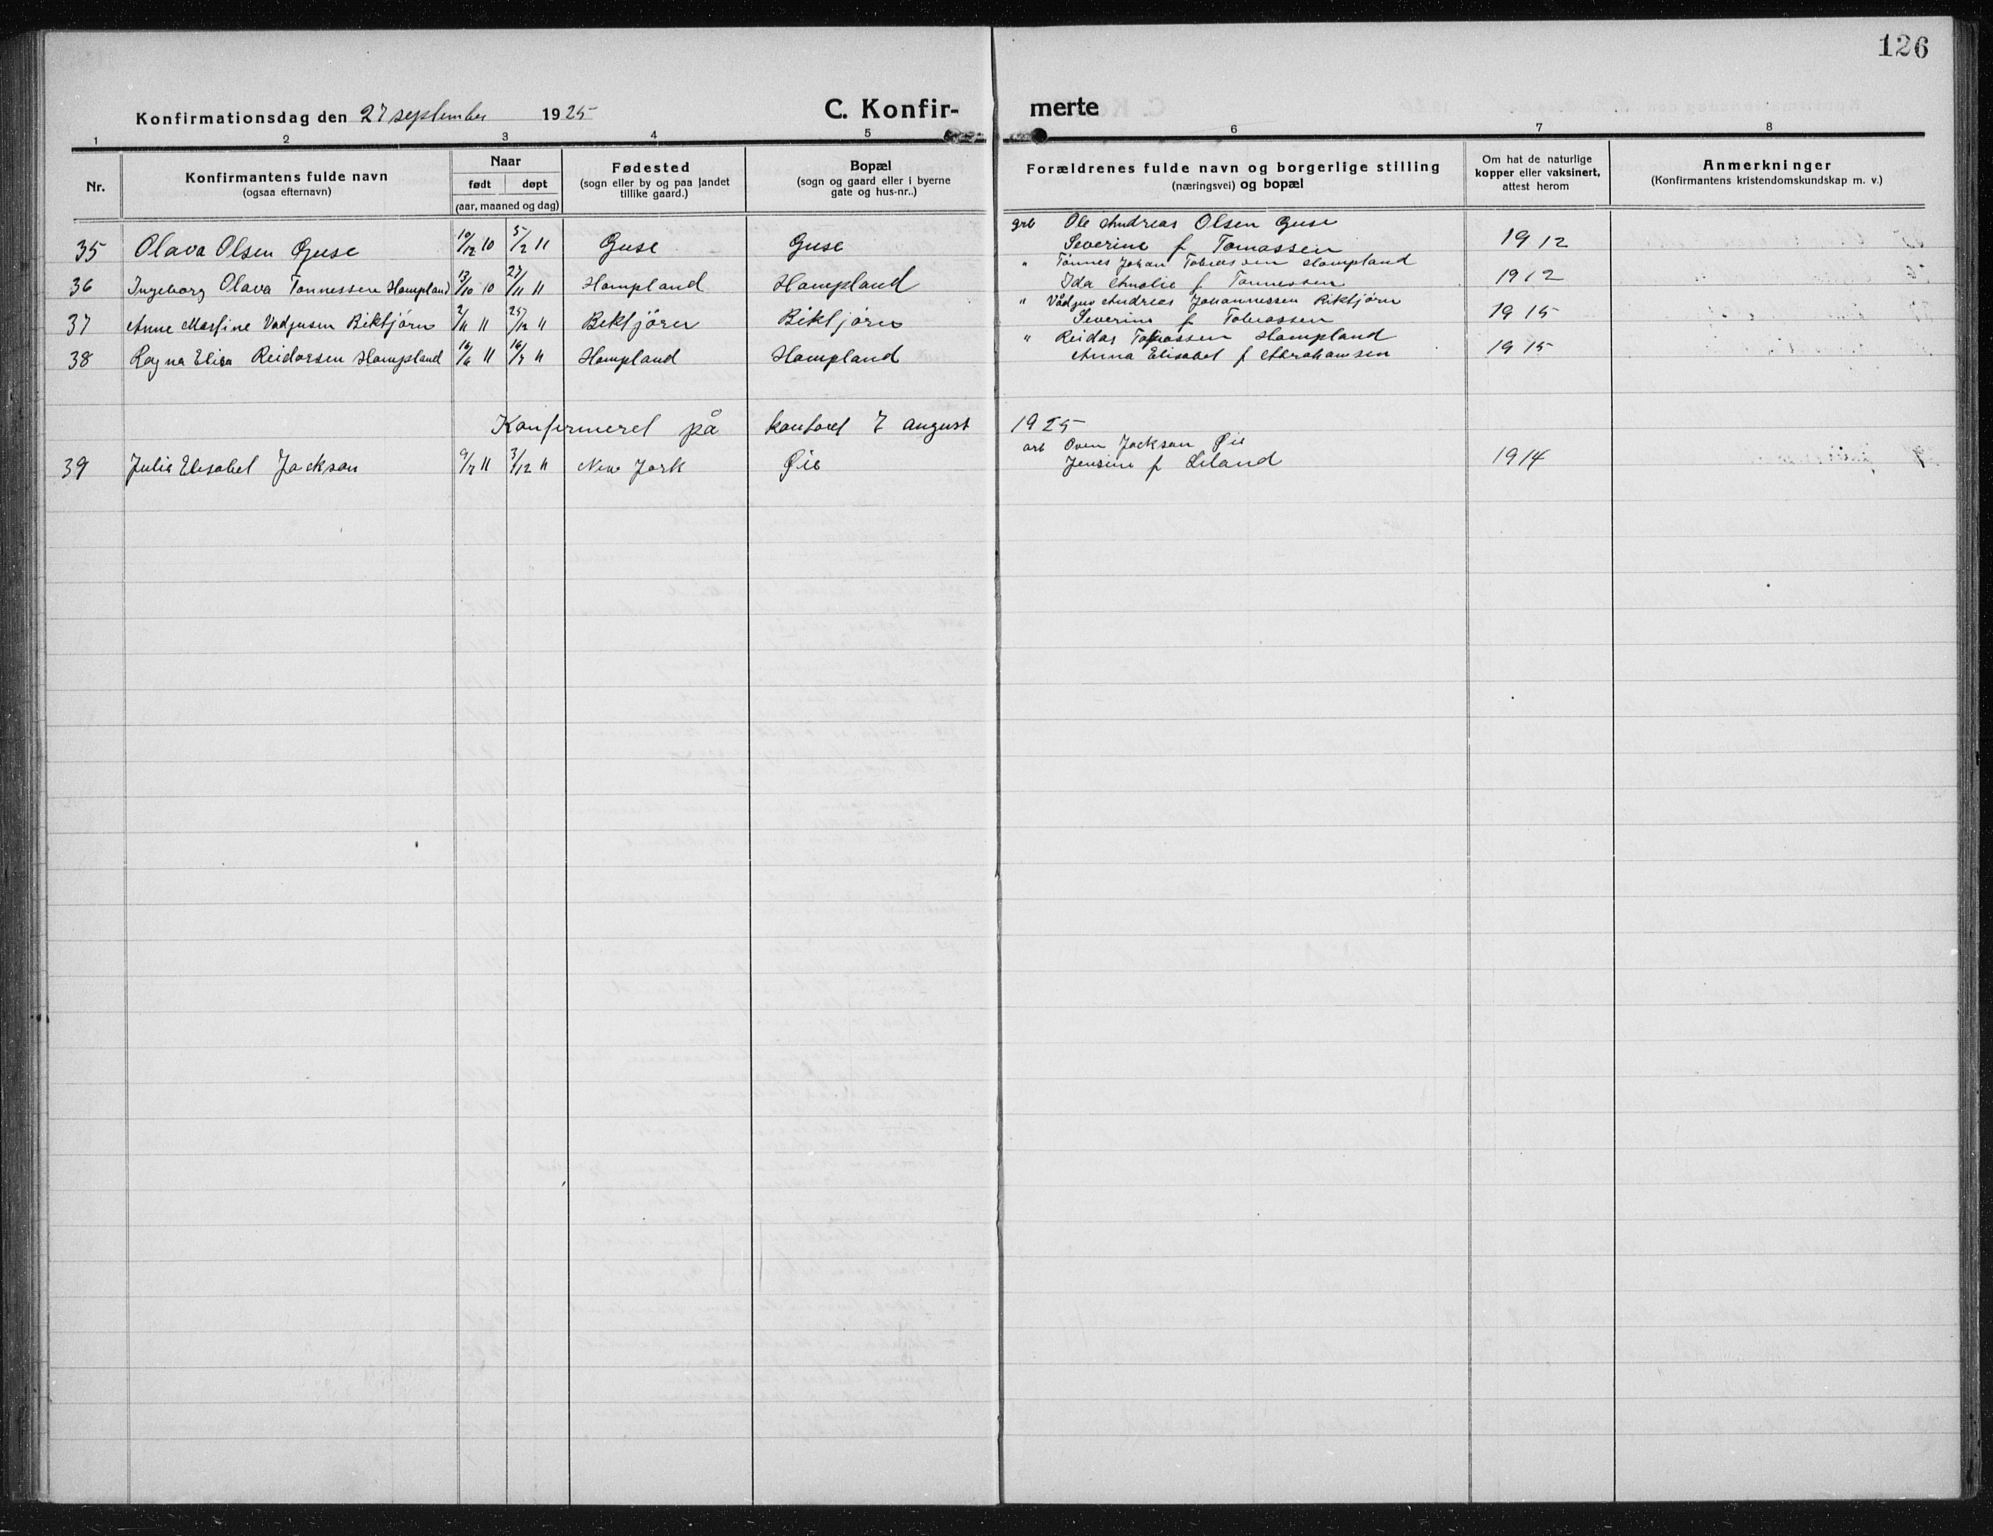 126
Konfirmationsdag den 27 september 1925 C. Konfir- merte
1 2 3 4 5 6 7 8
Nr. Konfirmantens fulde navn (ogsaa efternavn) Naar født døpt (aar, maaned og dag) Fødested (sogn eller by og paa landet tillike gaard.) Bopæl (sogn og gaard eller i byerne gate og hus-nr..) Forældrenes fulde navn og borgerlige stilling (næringsvei) og bopæl Om hat de naturlige kopper eller vaksinert, attest herom Anmerkninger (Konfirmantens kristendomskundskap m. v.)
grb Ole Andreas Olsen Guse
35 Olava Olsen Guse 19/12 10 5/2 11 Guse Guse Severine f Tomassen 1912
" Tønnes Johan Tobiassen Hompland
36 Ingeborg Olava Tønnessen Hompland 13/10 10 27/11 11 Hompland Hompland Ida Amalie f Tønnessen 1912
" Vådgus Andreas Johannessen Birktjørn
37 Anne Martine Vadgusen Birktjørn 2/11 11 25/12 11 Birktjørn Birktjørn Severine f Tobiassen 1915
" Reidar Tobiassen Hompland
38 Ragna Elisa Reidarsen Hompland 16/6 11 16/7 11 Hompland Hompland Anna Elisabet f Abrahamsen 1915
Konfirmeret på kontoret 7 august 1925
arb Oven Jackson Øie
39 Julie Elisabet Jackson 9/7 11 3/12 11 New Jork Øie Jensine f Liland 1914